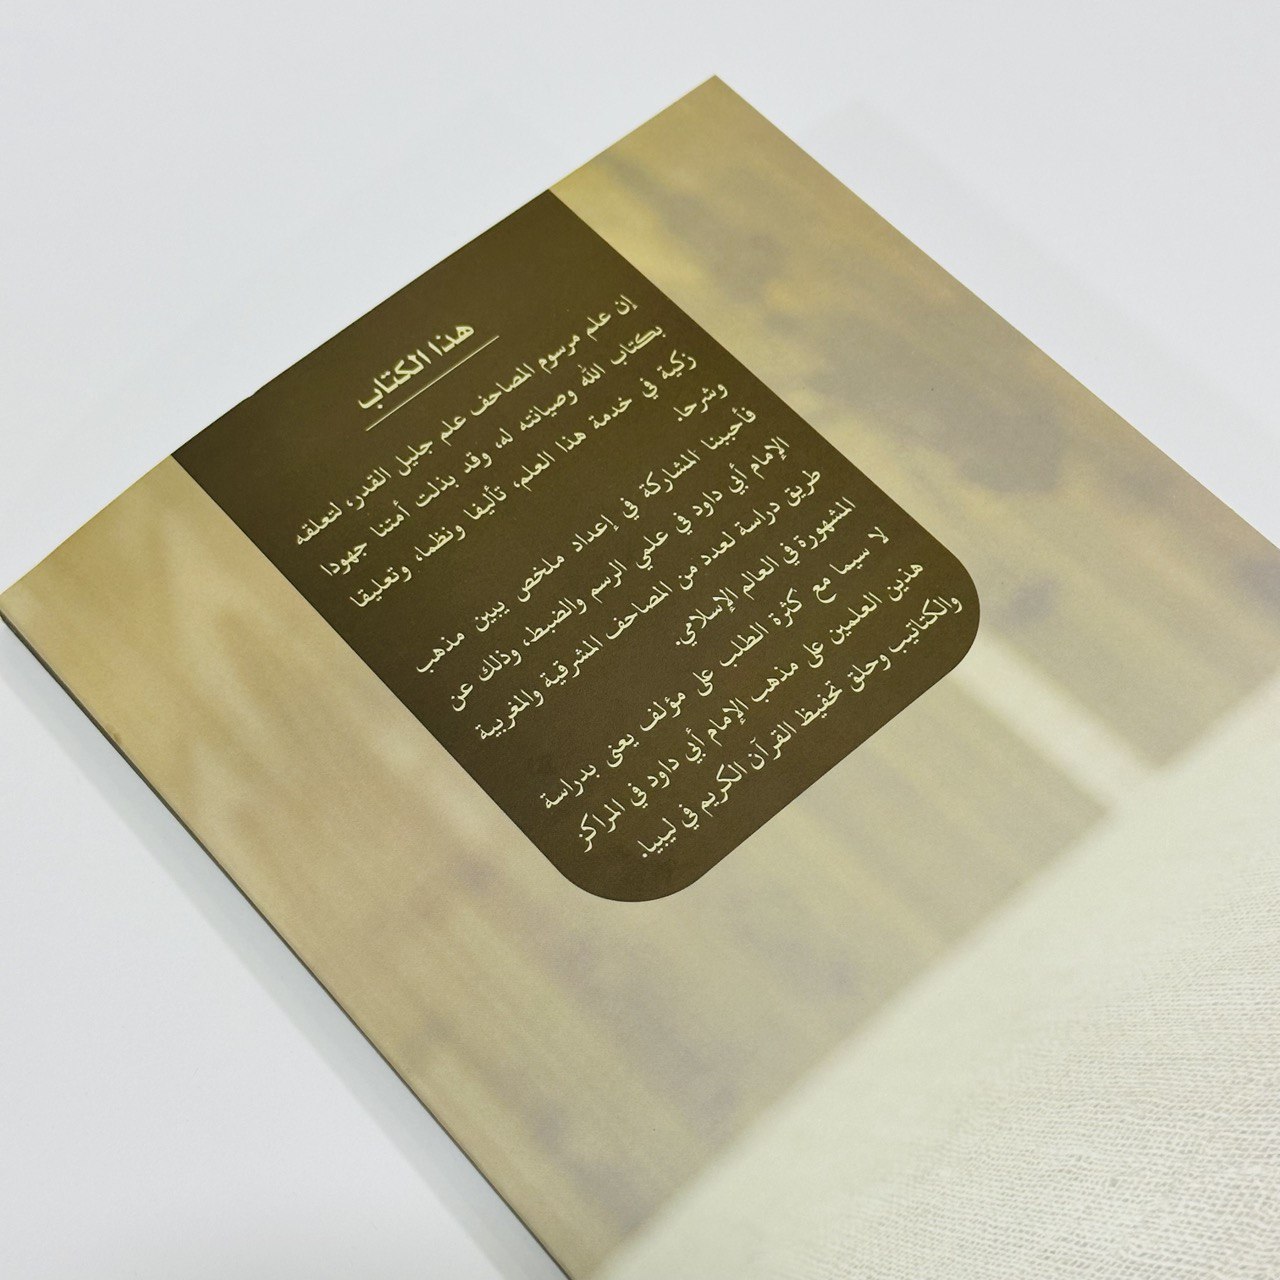 هذا الكتاب
إن علم مرسوم المصاحف علم جليل القدر، لتعلقه
بكتاب الله وصيانته له، وقد بذلت أمتنا جهودا
زكية في خدمة هذا العلم، تأليفا ونظما، وتعليقا
وشرحا.
فأحببنا المشاركة في إعداد ملخص يبين مذهب
الإمام أبي داود في علمي الرسم والضبط، وذلك عن
طريق دراسة لعدد من المصاحف المشرقية والمغربية
المشهورة في العالم الإسلامي.
لا سيما مع كثرة الطلب على مؤلف يعنى بدراسة
هذين العلمين على مذهب الإمام أبي داود في المراكز
والكتاتيب وحلق تحفيظ القرآن الكريم في ليبيا.